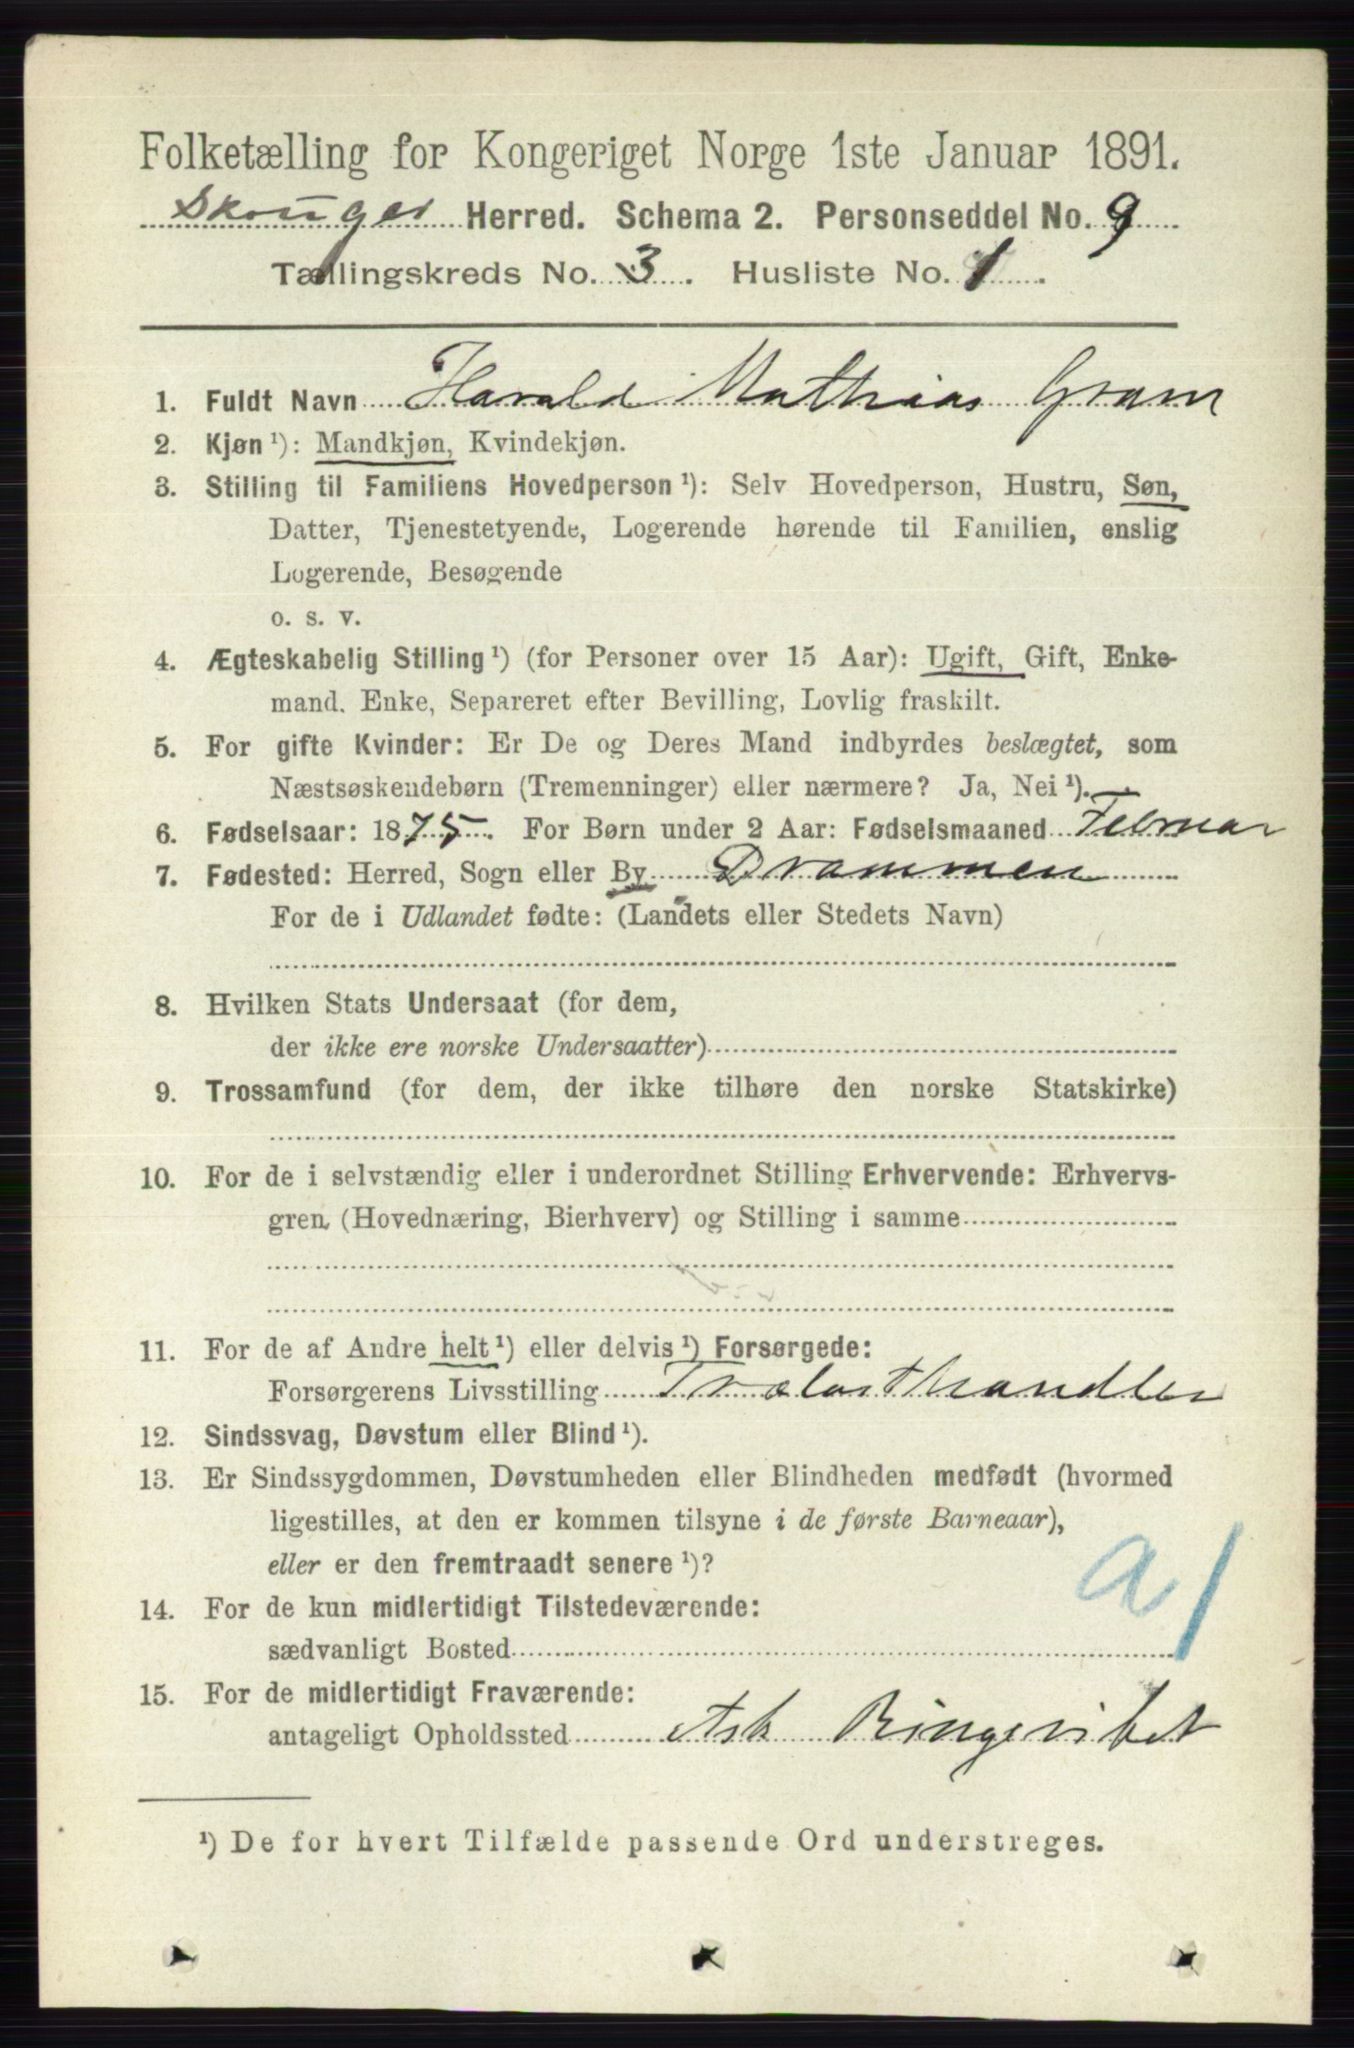 Folketælling for Kongeriget Norge 1ste Januar 1891.
Skouger Herred. Schema 2. Personseddel No. 9
Tællingskreds No. 3. Husliste No. 1.
1. Fuldt Navn Harald Mathias Gram
2. Kjøn ¹): Mandkjøn, Kvindekjøn.
3. Stilling til Familiens Hovedperson ¹): Selv Hovedperson, Hustru, Søn,
Datter, Tjenestetyende, Logerende hørende til Familien, enslig
Logerende, Besøgende
o. s. v.
4. Ægteskabelig Stilling ¹) (for Personer over 15 Aar): Ugift, Gift, Enke-
mand, Enke, Separeret efter Bevilling, Lovlig fraskilt.
5. For gifte Kvinder: Er De og Deres Mand indbyrdes beslægtet, som
Næstsøskendebørn (Tremenninger) eller nærmere? Ja, Nei ¹).
6. Fødselsaar: 1875. For Børn under 2 Aar: Fødselsmaaned Februar
7. Fødested: Herred, Sogn eller By Drammen
For de i Udlandet fødte: (Landets eller Stedets Navn)
8. Hvilken Stats Undersaat (for dem,
der ikke ere norske Undersaatter)
9. Trossamfund (for dem, der ikke tilhøre den norske Statskirke)
10. For de i selvstændig eller i underordnet Stilling Erhvervende: Erhvervs-
gren (Hovednæring, Bierhverv) og Stilling i samme
11. For de af Andre helt ¹) eller delvis ¹) Forsørgede:
Forsørgerens Livsstilling Trælasthandler
12. Sindssvag, Døvstum eller Blind ¹).
13. Er Sindssygdommen, Døvstumheden eller Blindheden medfødt (hvormed
ligestilles, at den er kommen tilsyne i de første Barneaar),
eller er den fremtraadt senere ¹)?
a 1
14. For de kun midlertidigt Tilstedeværende:
sædvanligt Bosted
15. For de midlertidigt Fraværende:
antageligt Opholdssted Ask
¹) De for hvert Tilfælde passende Ord understreges.